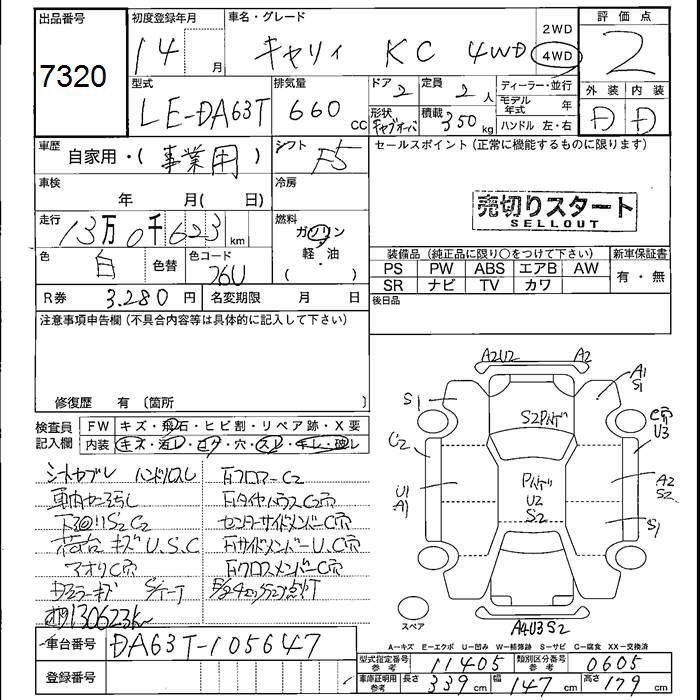 出品番号 初度登録年月 車名・グレード 評価点
7320 14 月 キャリィ KC 4WD 2WD 4WD 2
型式 排気量 ドア 定員 ディーラー・並行 外装 内装
LE-DA63T 660 CC 2 2 人 モデル年式 年 D D
形状 キャブオーバ 積載 350 kg ハンドル 左・右
車歴 自家用・(事業用) シフト F5 セールスポイント(正常に機能するものに限ります)
車検 年 月( 日) 冷房
売切りスタート
SELLOUT
走行 13万0千623 km 燃料 ガソリン
軽・油
( )
色 白 色替 色コード 26U
装備品(純正品に限り○をつけて下さい) 新車保証書
PS PW ABS エアB AW 有・無
SR ナビ TV カワ
R券 3.280 円 名変期限 月 日 後日品
注意事項申告欄(不具合内容等は具体的に記入して下さい)
修復歴 有 〔箇所
検査員記入欄 FW キズ・飛石・ヒビ割・リペア跡・X要
内装 キズ・汚レ・コゲ・穴・スレ・キレ・破レ
シートヤブレ ハンドルスレ
車内ヤニ汚レ
下回リS2C2
荷台キズU.S.C
アオリC穴
左ミラーキズ S/T-T
130623k
右フロアーC2
右タイヤハウスC2穴
センターサイドメンバーC穴
右サイドメンバーU.C穴
右クロスメンバーC穴
A2U2 A2
S1 A1 S1
S2Pハゲ
C穴 U3
C2
U1 A1
Pハゲ U2 S2
A2 S2
S1
スペア
A4U3S2
A…キズ E…エクボ U…凹み W…補修跡 S…サビ C…腐食 XX…交換済
車台番号 DA63T-105647
登録番号
型式指定番号 参考 11405 類別区分番号 参考 0605
車庫証明用 参考 長さ 339 cm 幅 147 cm 高さ 179 cm